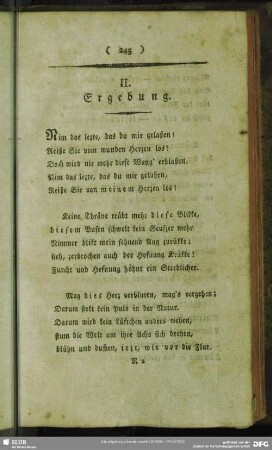 ( 245 )
II.
Ergebung.
Nim das lezte, das du mir gelaßen!
Reiße Sie vom wunden Herzen los!
Doch wird nie mehr diese Wang' erblaßen.
Nim das lezte, das du mir gelaßen,
Reiße Sie von meinem Herzen los!
Keine Thräne trübt mehr diese Blikke,
diesem Busen schwelt kein Seufzer mehr.
Nimmer blikt mein sehnend Aug zurükke;
sieh, zerbrochen auch der Hofnung Krükke!
Furcht und Hofnung höhnt ein Sterblicher.
Mag dies Herz verbluten, mag's vergehen;
Darum stokt kein Puls in der Natur.
Darum wird kein Lüftchen anders wehen,
stum die Welt um ihre Achs sich drehen,
blühn und duften, jezt, wie vor die Flur.
SLUB